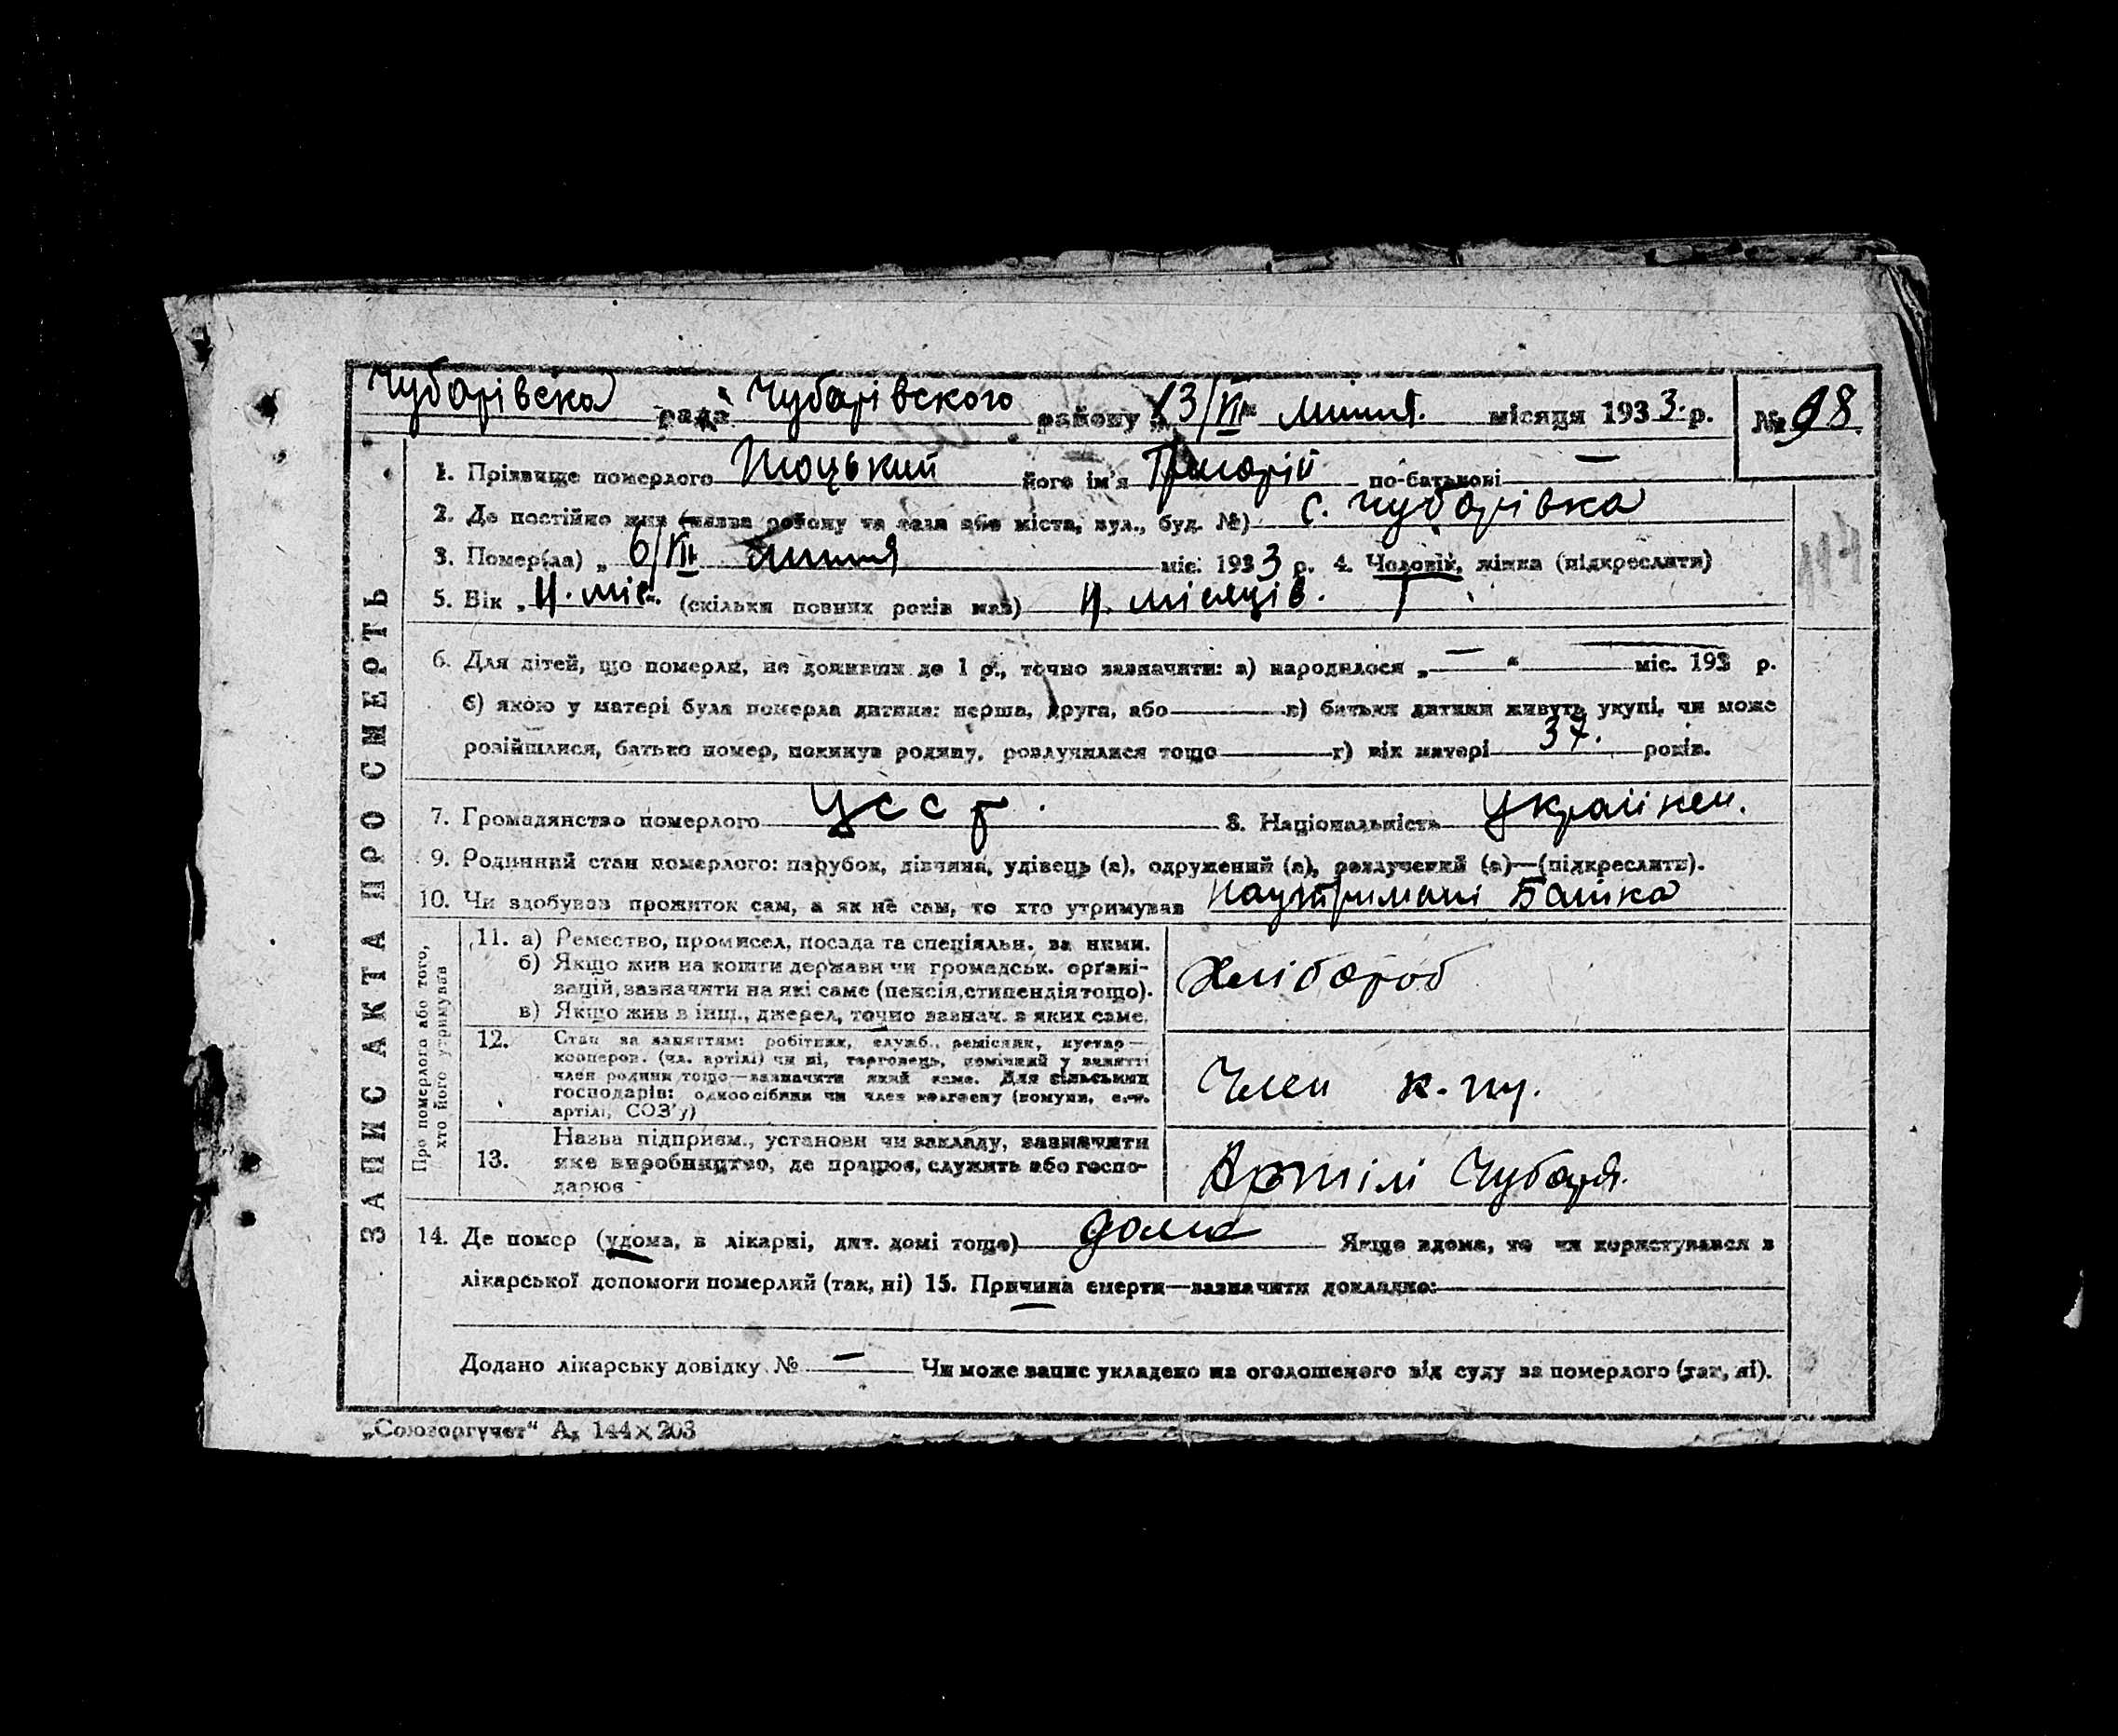 Чубарівска рада Чубарівского району 13/VII липня. місяця 1933. р. № 98.
ЗАПИС АКТА ПРО СМЕРТЬ
1. Прізвище померлого Тоцький його ім'я Григорій по-батькові —
2. Де постійно жив (назва району та села або міста, вул., буд. №) с. Чубарівка
3. Помер(ла) „ 6/VII липня міс. 1933 р. 4. Чоловік, жінка (підкреслити)
5. Вік „ 4. міс.“ (скільки повних років мав) 4. місяців.
6. Для дітей, що померли, не доживши до 1 р., точно зазначити: а) народилося „ — “ — міс. 193 р.
б) якою у матері була померла дитина: перша, друга, або в) батьки дитини живуть укупі, чи може
розійшлися, батько помер, покинув родину, розлучилися тощо г) вік матері 37. років.
7. Громадянство померлого УССР. 8. Національність Україней.
9. Родинний стан померлого: парубок, дівчина, удівець (а), одружений (а), розлучений (а)—(підкреслити).
10. Чи здобував прожиток сам, а як не сам, то хто утримував наутримані Батька
Про померлого або того,
хто його утримував
11. а) Ремество, промисел, посада та спеціяльн. за ними.
б) Якщо жив на кошти держави чи громадськ. органі-
зацій, зазначити на які саме (пенсія, стипендія тощо).
в) Якщо жив з інш., джерел, точно зазнач. з яких саме.
Хлібороб
12. Стан за заняттям: робітник, служб., ремісник, кустар—
кооперов. (чл. артілі) чи ні, торговець, помічний у занятті
член родини тощо—зазначити який саме. Для сільських
господарів: одноосібник чи член колгоспу (комуни, с.-г.
артілі, СОЗ'у)
Член к.-гу.
13. Назва підприєм., установи чи закладу, зазначити
яке виробництво, де працює, служить або госпо-
дарює
Артілі Чубаря.
14. Де помер (удома, в лікарні, дит. домі тощо) дома Якщо вдома, то чи користувався з
лікарської допомоги померлий (так, ні) 15. Причина смерти—зазначити докладно:
Додано лікарську довідку № — Чи може запис укладено на оголошеного від суду за померлого (так, ні).
„Союзоргучет“ А₅ 144×203